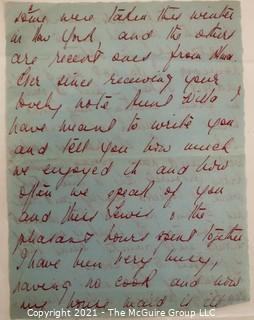 some were taken this winter
in New York, and the others
are recent ones from
Ever since receiving your
lovely note Aunt Willa I
have meant to write you
and tell you how much
we enjoyed it and how
often we speak of you
and Miss Lewis & the
pleasant hours spent together
I have been very busy,
having no cook and now
my house maid is ill
Copyright 2021 - The McGuire Group LLC